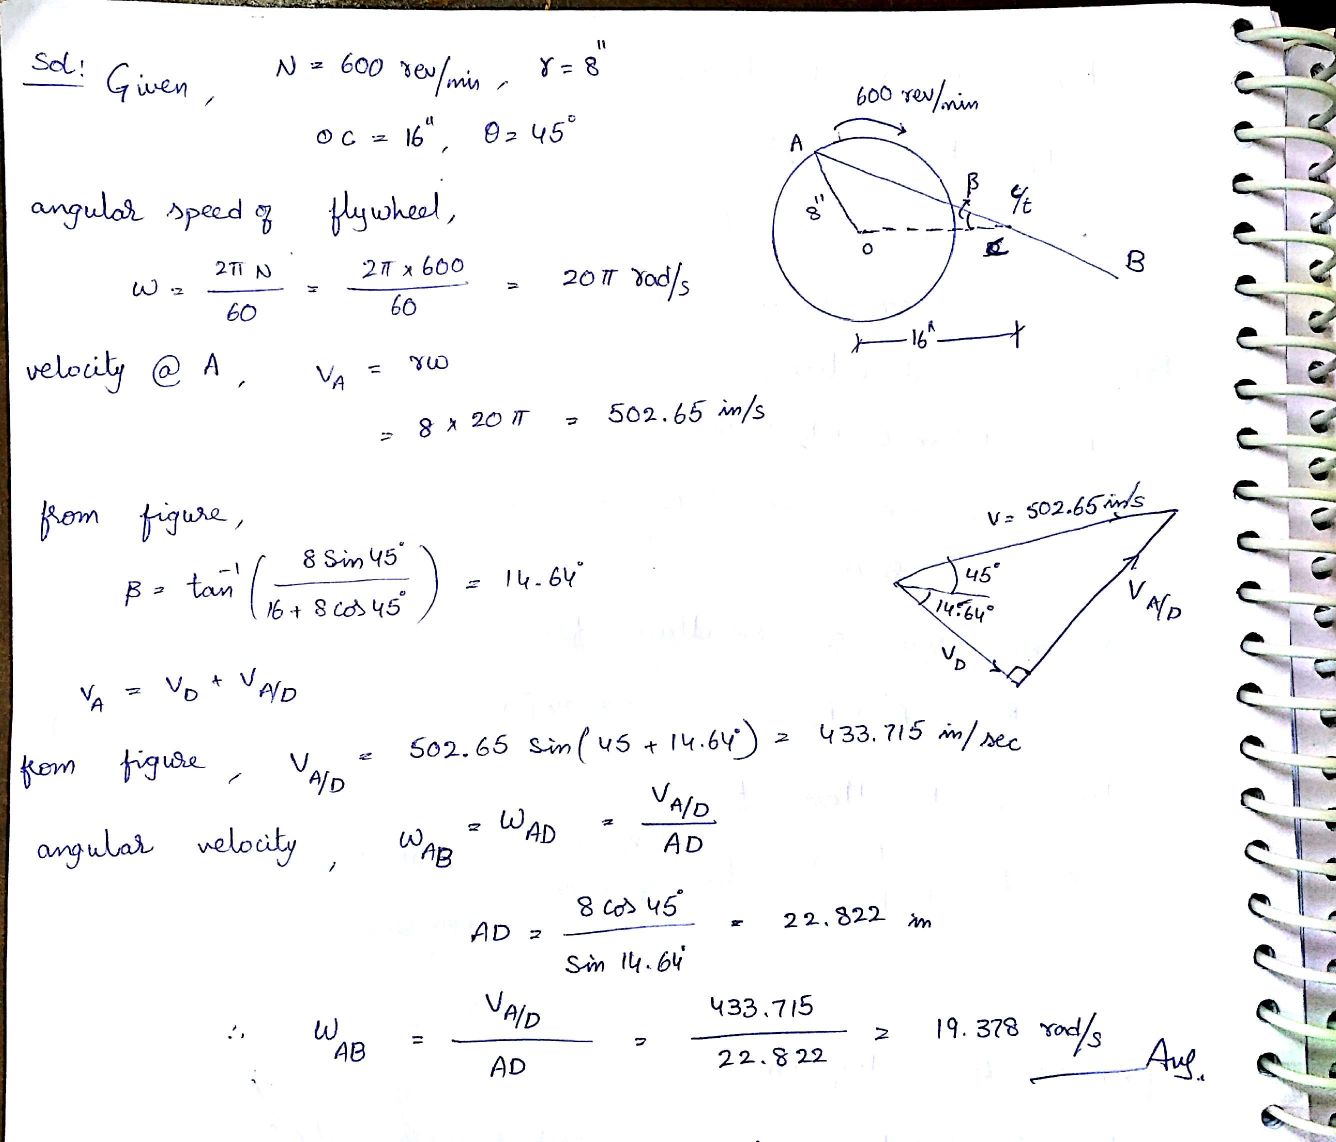 Sol: Given, N = 600 rev/min, r = 8"
OC = 16", θ = 45°
600 rev/min
A
8"
O
β
B
16"
angular speed of flywheel,
ω = 2πN / 60 = 2π x 600 / 60 = 20π rad/s
velocity @ A, V_A = rω
= 8 x 20π = 502.65 in/s
from figure,
β = tan⁻¹ ( 8 Sin 45° / 16 + 8 cos 45° ) = 14.64°
V = 502.65 in/s
45°
14.64°
V_D
V_A/D
V_A = V_D + V_A/D
from figure, V_A/D = 502.65 Sin (45 + 14.64°) = 433.715 in/sec
angular velocity, ω_AB = ω_AD = V_A/D / AD
AD = 8 cos 45° / Sin 14.64° = 22.822 in
∴ ω_AB = V_A/D / AD = 433.715 / 22.822 = 19.378 rad/s Ans.